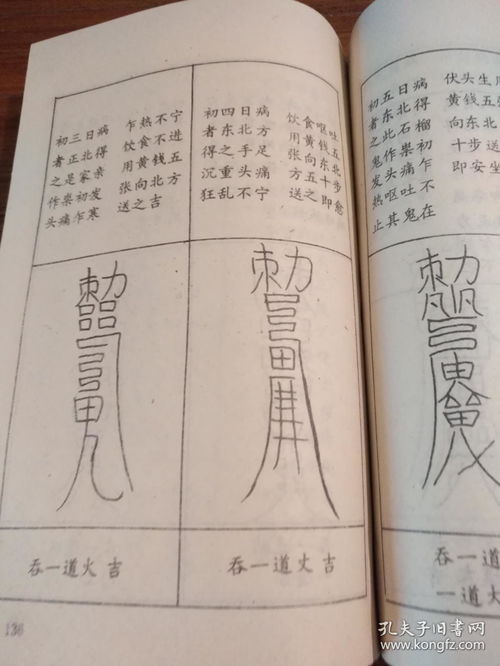 初三日病
者正北得
之是家亲
作祟初发
头痛乍寒
乍热不宁
饮食不进
用黄钱五
张向北方
送之吉
初四日病
者东北方
得之手足
沉重头痛
狂乱不宁
饮食呕吐
用黄钱五
张向东北
方五十步
送之即愈
初五日病
者东北得
之此石榴
鬼作祟初
发头痛乍
热呕吐不
止其鬼在
伏头生
黄钱五张
向东北
十步送
即安坐
吞一道火吉
吞一道火吉
吞一
一道
136
孔夫子旧书网
www.kongfz.com